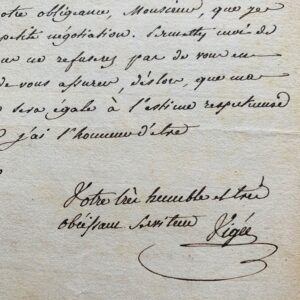 otre obligeance, Monsieur, que je
petite négotiation. Permettez moi de
ne refuserez pas de vous en
de vous assurer, dèslors, que ma
sera égale à l'estime respectueuse
j'ai l'honneur d'être
Votre très humble et très
obéissant Serviteur Vigée